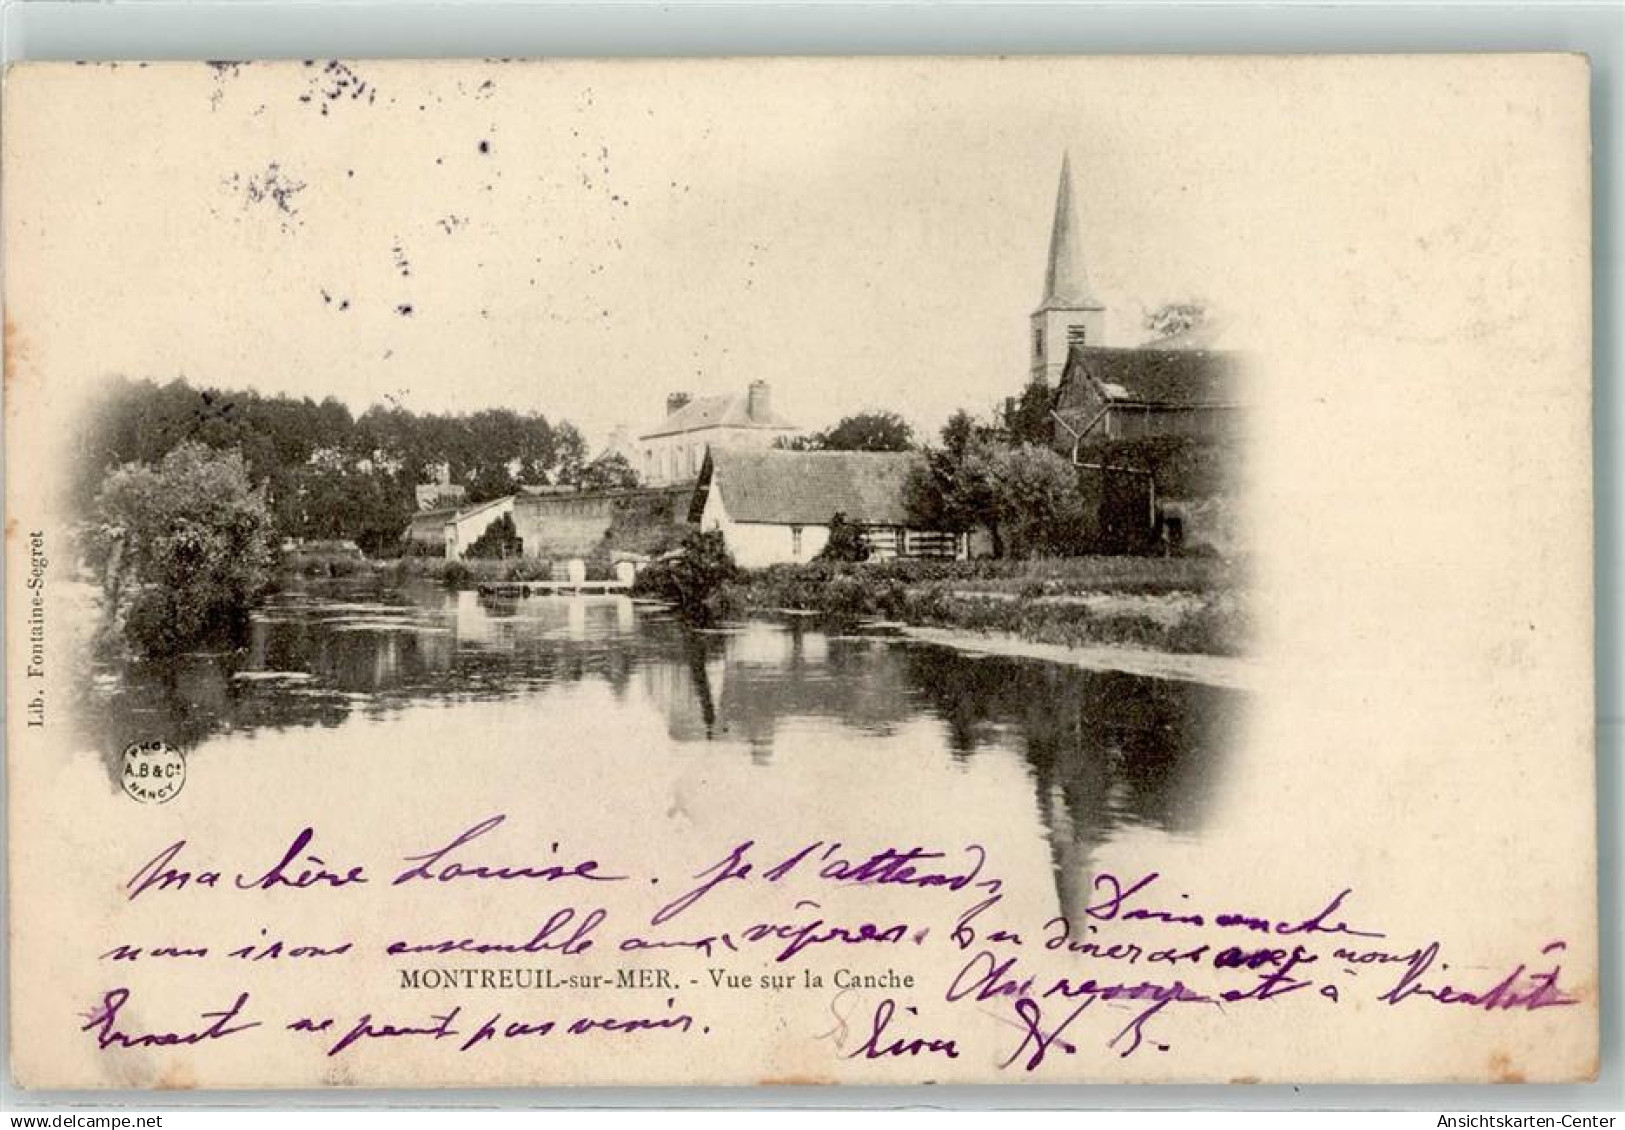 Lib. Fontaine-Segret
PHOT
A.B & Cie
NANCY
Ma chère Louise. Je t'attends Dimanche
nous irons ensemble aux vêpres. Tu dîneras avec nous.
MONTREUIL-sur-MER. - Vue sur la Canche
Au revoir et à bientôt
Ernest ne peut pas venir.
delcampe.net
Ansichtskarten-Center